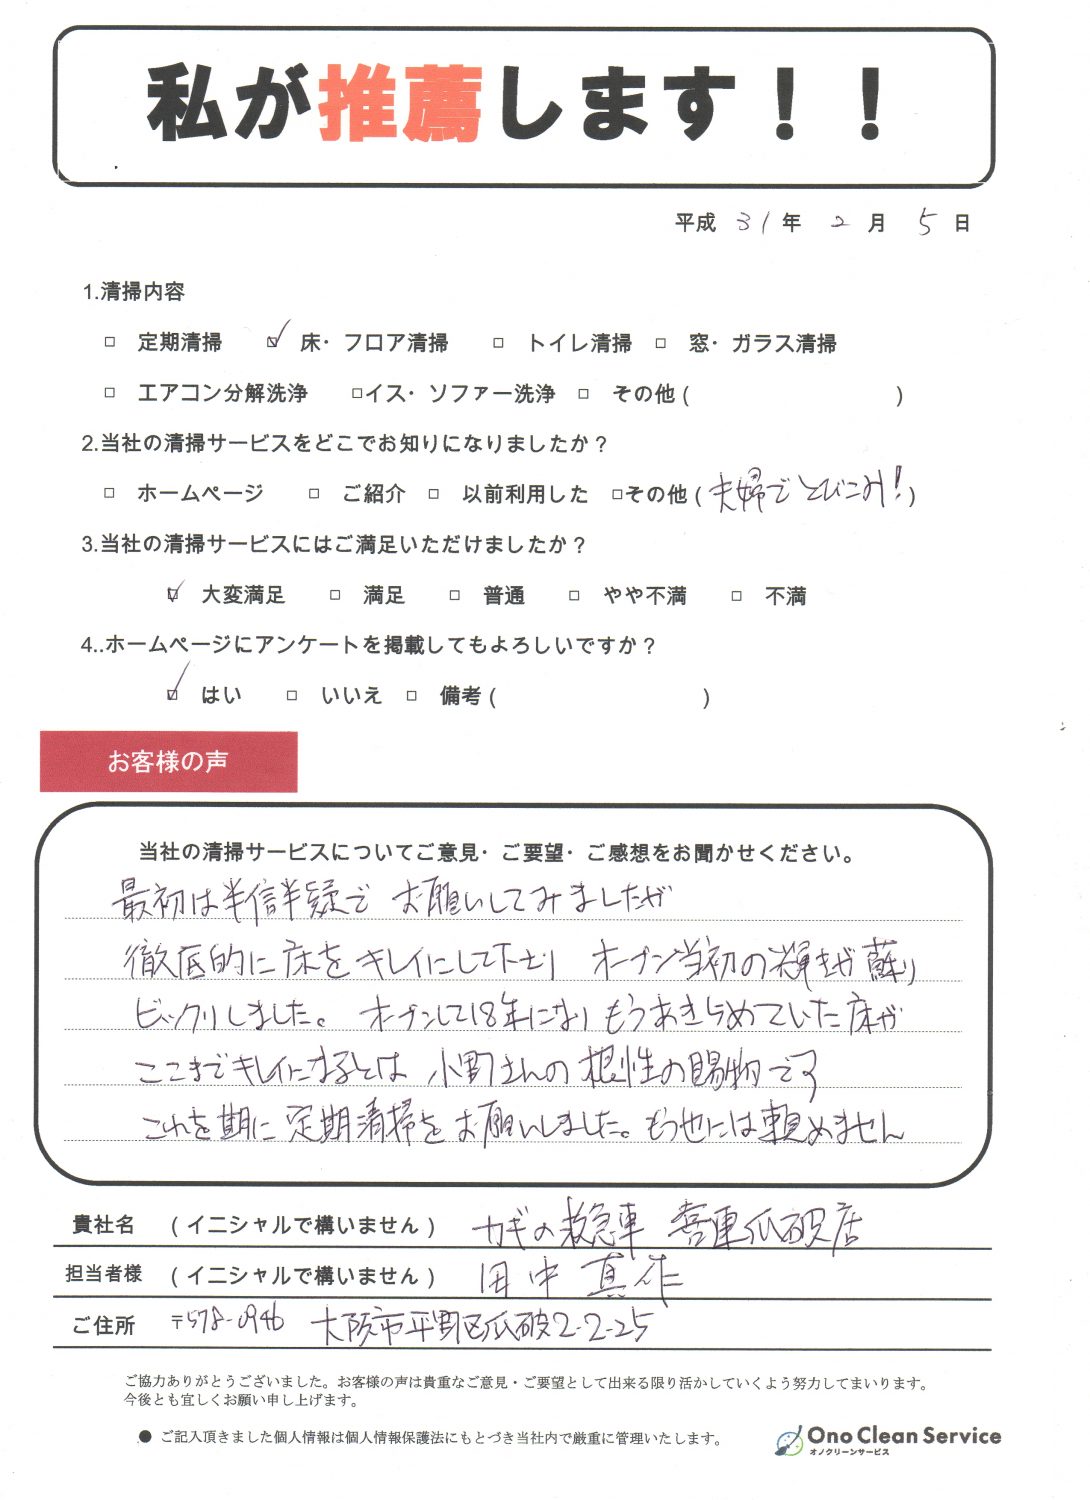 私が推薦します！！
平成 31年 2月 5日
1.清掃内容
□ 定期清掃 ☑ 床・フロア清掃 □ トイレ清掃 □ 窓・ガラス清掃
□ エアコン分解洗浄 □イス・ソファー洗浄 □ その他( )
2.当社の清掃サービスをどこでお知りになりましたか？
□ ホームページ □ ご紹介 □ 以前利用した □その他(夫婦でとびこみ!)
3.当社の清掃サービスにはご満足いただけましたか？
☑ 大変満足 □ 満足 □ 普通 □ やや不満 □ 不満
4..ホームページにアンケートを掲載してもよろしいですか？
☑ はい □ いいえ □ 備考( )
お客様の声
当社の清掃サービスについてご意見・ご要望・ご感想をお聞かせください。
最初は半信半疑で お願いしてみましたが
徹底的に床をキレイにして下さり オープン当初の輝きが蘇り
ビックリしました。 オープンして18年になりもうあきらめていた床が
ここまでキレイになるとは 小野さんの根性の賜物です
これを期に定期清掃をお願いしました。もう他には頼めません
貴社名 (イニシャルで構いません) カギの救急車 喜連瓜破店
担当者様 (イニシャルで構いません) 田中 真作
ご住所 〒578-0946 大阪市平野区瓜破2-2-25
ご協力ありがとうございました。お客様の声は貴重なご意見・ご要望として出来る限り活かしていくよう努力してまいります。
今後とも宜しくお願い申し上げます。
● ご記入頂きました個人情報は個人情報保護法にもとづき当社内で厳重に管理いたします。
Ono Clean Service
オノクリーンサービス